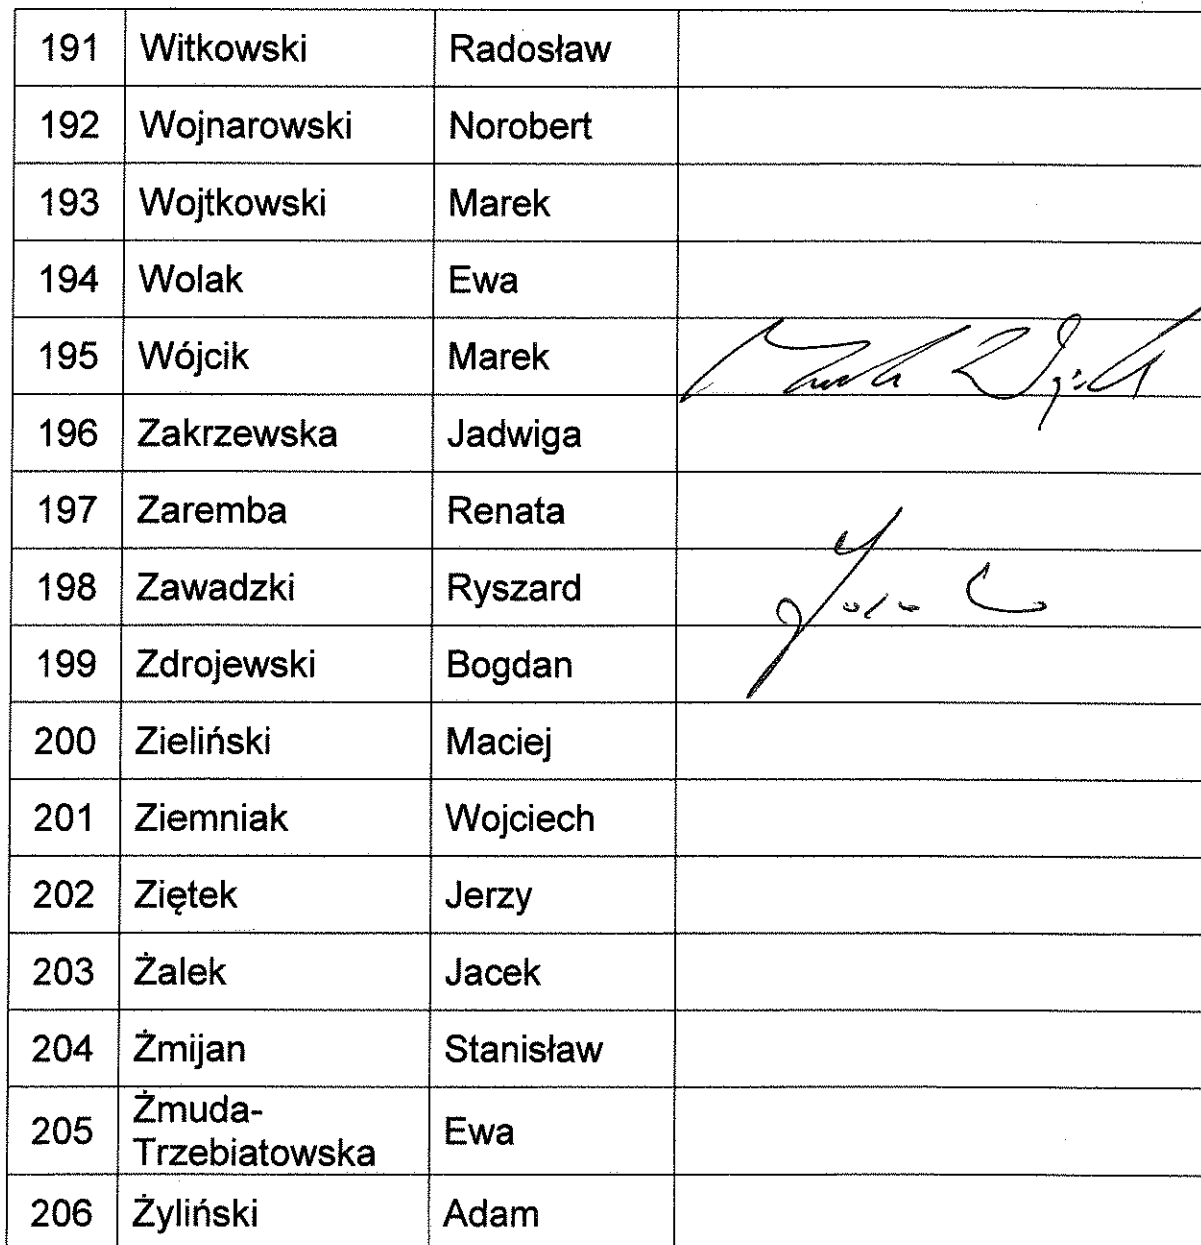 191 Witkowski Radosław
192 Wojnarowski Norobert
193 Wojtkowski Marek
194 Wolak Ewa
195 Wójcik Marek Marek Wójcik
196 Zakrzewska Jadwiga
197 Zaremba Renata
198 Zawadzki Ryszard
199 Zdrojewski Bogdan
200 Zieliński Maciej
201 Ziemniak Wojciech
202 Ziętek Jerzy
203 Żalek Jacek
204 Żmijan Stanisław
205 Żmuda-
Trzebiatowska Ewa
206 Żyliński Adam